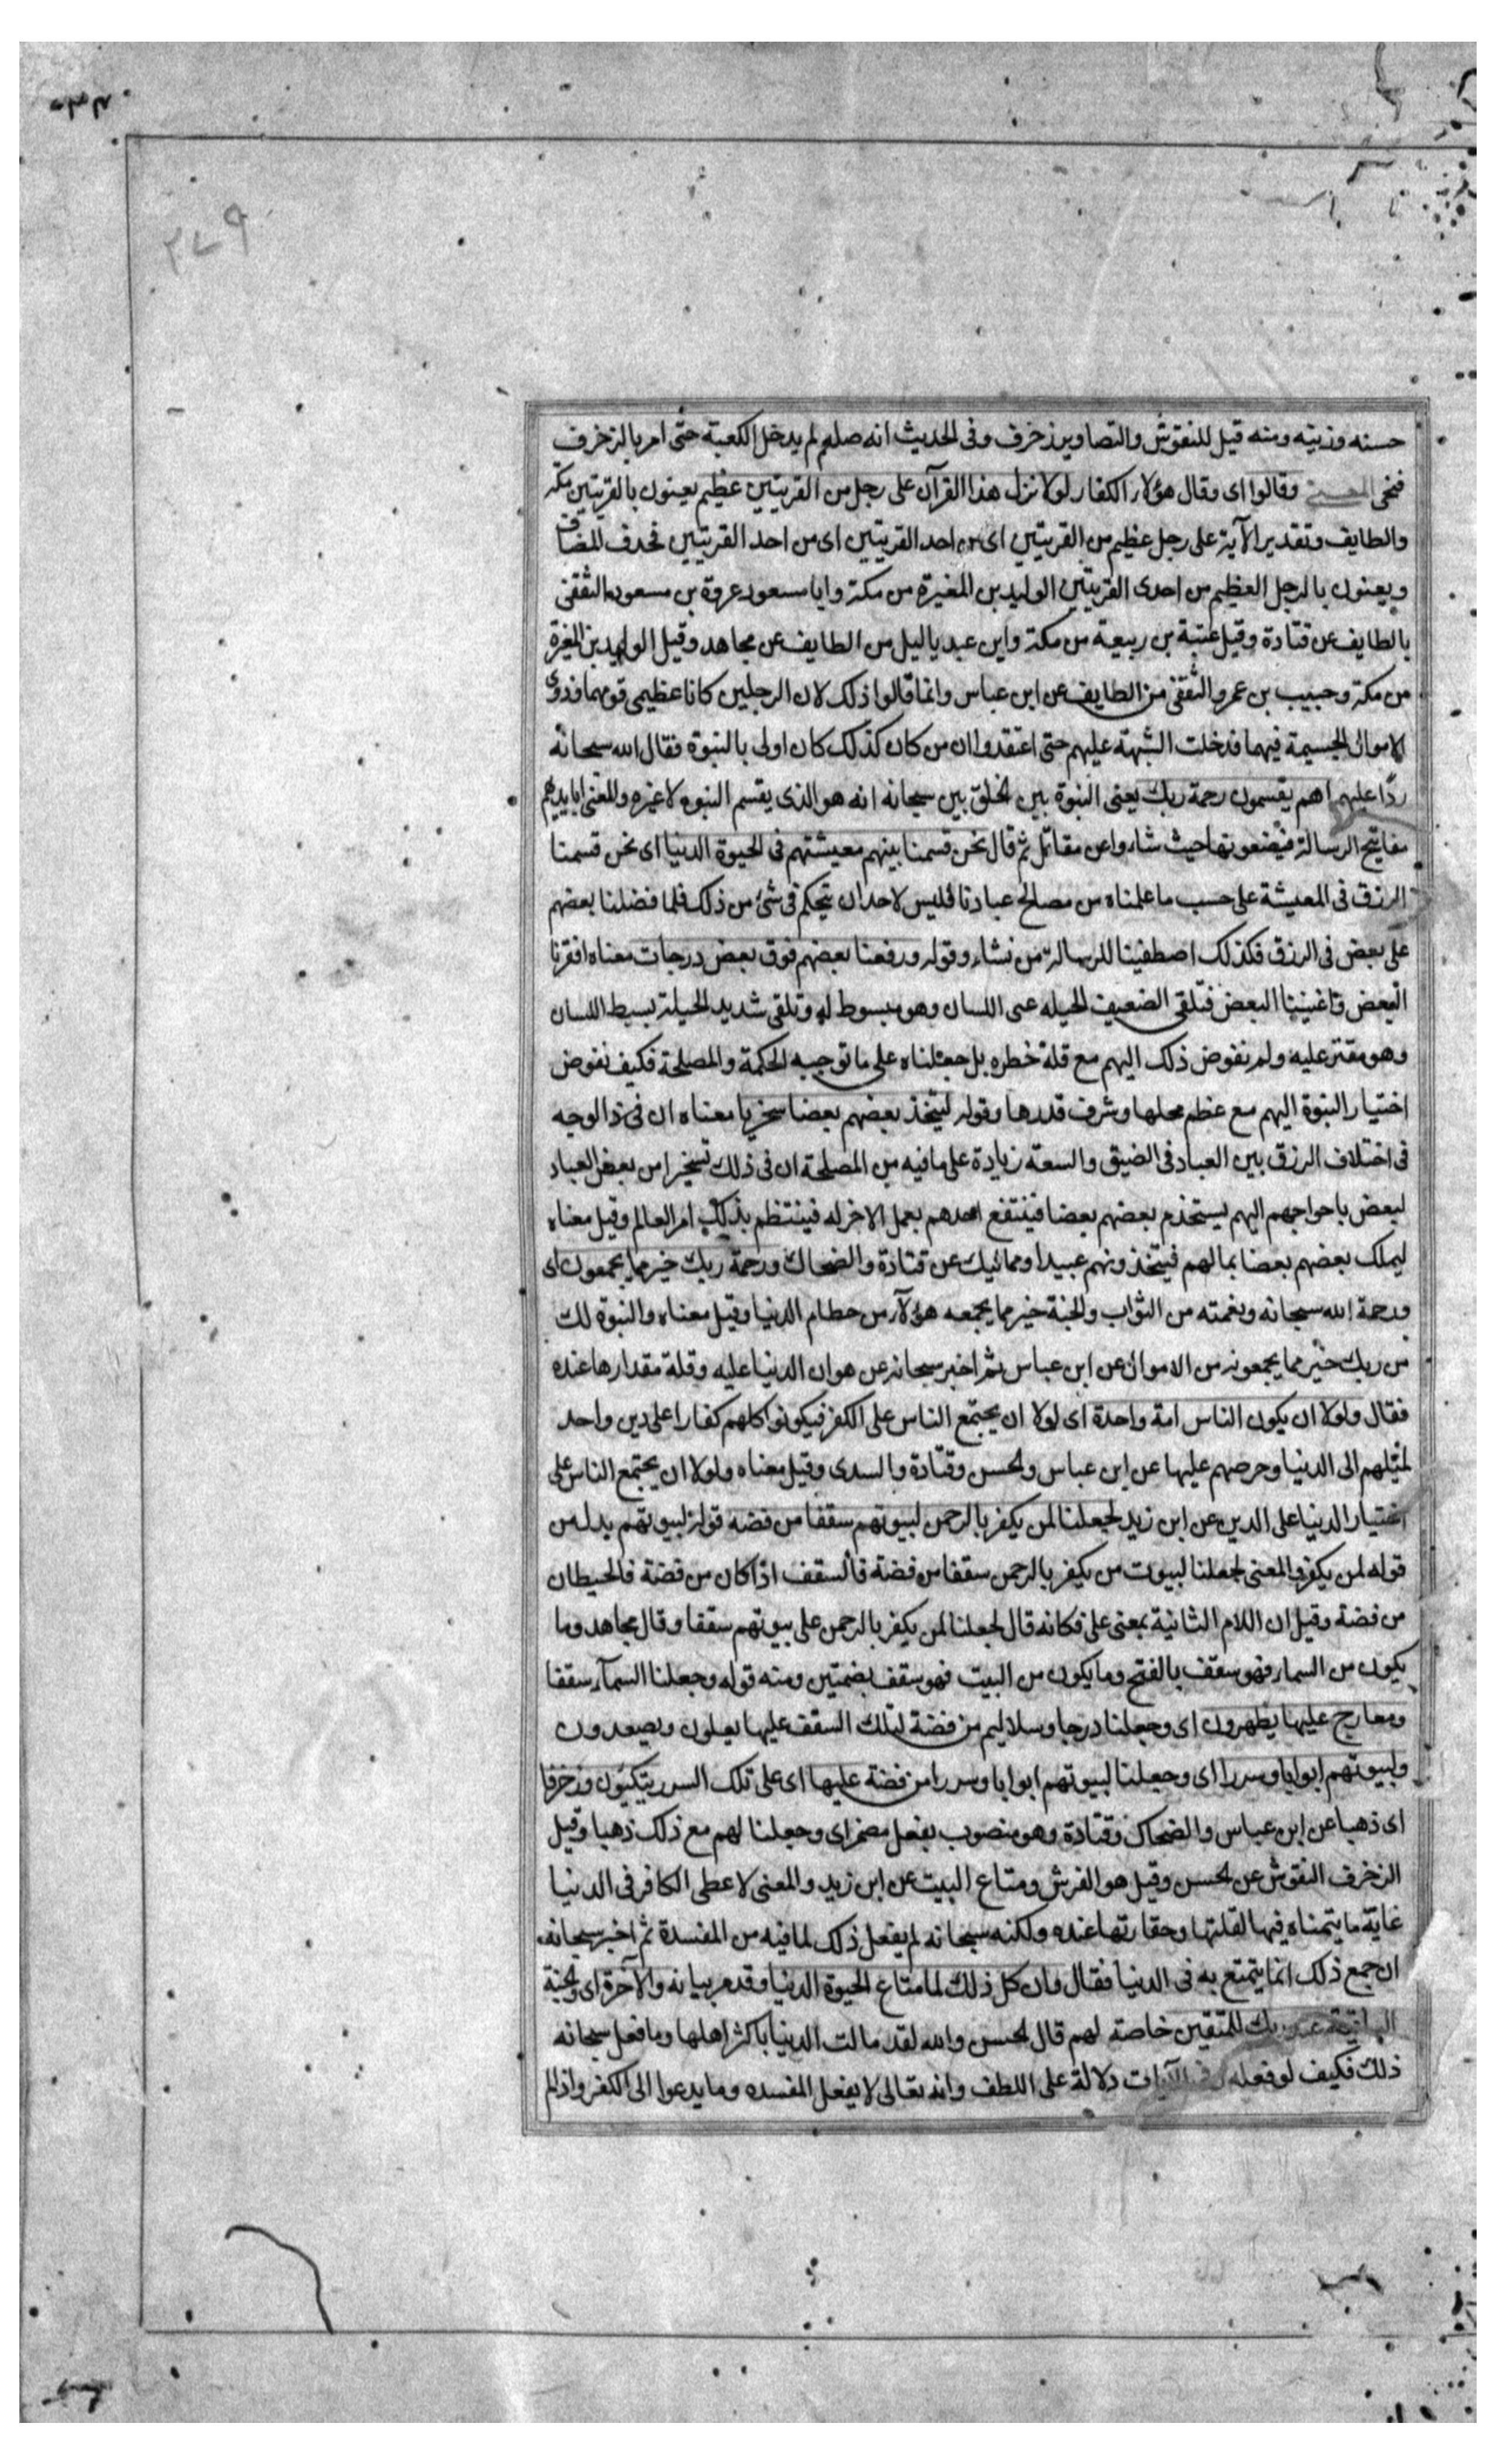 ٣٧٩
حسنه وزينه ومنه قيل للنقوش والتصاوير زخرف وفى الحديث انه صلعم لم يدخل الكعبة حتى امر بالزخرف
فنحى المعنى وقالوا اى وقال هؤلاء الكفار لولا نزل هذا القرآن على رجل من القريتين عظيم يعنون بالقريتين مكة
والطايف وتقدير الآية على رجل عظيم من القريتين اى من احد القريتين اى من احد القريتين فحذف المضاف
ويعنون بالرجل العظيم من احدى القريتين الوليد بن المغيرة من مكة وابا مسعود عروة بن مسعود الثقفى
بالطايف عن قتادة وقيل عتبة بن ربيعة من مكة وابن عبد ياليل من الطايف عن مجاهد وقيل الوليد بن المغيرة
من مكة وحبيب بن عمرو الثقفى من الطايف عن ابن عباس وانما قالوا ذلك لان الرجلين كانا عظيمى قومهما وذوى
الاموال الجسيمة فيهما فدخلت الشبهة عليهم حتى اعتقدوا ان من كان كذلك كان اولى بالنبوة فقال الله سبحانه
ردا عليهم اهم يقسمون رحمة ربك يعنى النبوة بين الخلق بين سبحانه انه هو الذى يقسم النبوه لا غيره والمعنى ابايديهم
مفاتيح الرسالة فيضعونها حيث شاءوا عن مقاتل ثم قال نحن قسمنا بينهم معيشتهم فى الحيوة الدنيا اى نحن قسمنا
الرزق فى المعيشة على حسب ما علمناه من مصالح عبادنا فليس لاحد ان يتحكم فى شئ من ذلك فلما فضلنا بعضهم
على بعض فى الرزق فكذلك اصطفينا للرسالة من نشاء وقوله ورفعنا بعضهم فوق بعض درجات معناه افقرنا
البعض واغنينا البعض فتلقى الضعيف الحيله عى اللسان وهو مبسوط له وتلقى شديد الحيلة بسيط اللسان
وهو مقتر عليه ولم نفوض ذلك اليهم مع قلة خطره بل جعلناه على ما توجبه الحكمة والمصلحة فكيف نفوض
اختيار النبوة اليهم مع عظم محلها وشرف قدرها وقوله ليتخذ بعضهم بعضا سخريا معناه ان فى ذا الوجه
فى اختلاف الرزق بين العباد فى الضيق والسعة زيادة على ما فيه من المصلحة ان فى ذلك تسخيرا من بعض العباد
لبعض باحواجهم اليهم يستخدم بعضهم بعضا فينتفع احدهم بعمل الاخر له فينتظم بذلك امر العالم وقيل معناه
ليملك بعضهم بعضا بمالهم فيتخذونهم عبيدا ومماليك عن قتادة والضحاك ورحمة ربك خير مما يجمعون اى
ورحمة الله سبحانه ونعمته من الثواب والجنة خير مما يجمعه هؤلاء من حطام الدنيا وقيل معناه والنبوة لك
من ربك خير مما يجمعونه من الاموال عن ابن عباس ثم اخبر سبحانه عن هوان الدنيا عليه وقلة مقدارها عنده
فقال ولولا ان يكون الناس امة واحدة اى لولا ان يجتمع الناس على الكفر فيكونوا كلهم كفارا على دين واحد
لميلهم الى الدنيا وحرصهم عليها عن ابن عباس والحسن وقتادة والسدى وقيل معناه ولولا ان يجتمع الناس على
اختيار الدنيا على الدين عن ابن زيد لجعلنا لمن يكفر بالرحمن لبيوتهم سقفا من فضه قوله لبيوتهم بدل من
قوله لمن يكفر والمعنى لجعلنا لبيوت من يكفر بالرحمن سقفا من فضة فالسقف اذا كان من فضة فالحيطان
من فضة وقيل ان اللام الثانية بمعنى على فكانه قال لجعلنا لمن يكفر بالرحمن على بيوتهم سقفا وقال مجاهد وما
يكون من السماء فهو سقف بالفتح وما يكون من البيت فهو سقف بضمتين ومنه قوله وجعلنا السمآء سقفا
ومعارج عليها يظهرون اى وجعلنا درجا وسلاليم من فضة لتلك السقف عليها يعلون ويصعدون
ولبيوتهم ابوابا وسررا اى وجعلنا لبيوتهم ابوابا وسررا من فضة عليها اى على تلك السرر يتكئون وزخرفا
اى ذهبا عن ابن عباس والضحاك وقتادة وهو منصوب بفعل مضمر اى وجعلنا لهم مع ذلك ذهبا وقيل
الزخرف النقوش عن الحسن وقيل هو الفرش ومتاع البيت عن ابن زيد والمعنى لاعطى الكافر فى الدنيا
غاية ما يتمناه فيها لقلتها وحقارتها عنده ولكنه سبحانه لم يفعل ذلك لما فيه من المفسدة ثم اخبر سبحانه
ان جمع ذلك انما يتمتع به فى الدنيا فقال وان كل ذلك لما متاع الحيوة الدنيا وقد مر بيانه والآخرة اى والجنة
الباقية عند ربك للمتقين خاصة لهم قال الحسن والله لقد مالت الدنيا باكثر اهلها وما فعل سبحانه
ذلك فكيف لو فعله وفى الآيات دلالة على اللطف وانه تعالى لا يفعل المفسده وما يدعوا الى الكفر واذا لم